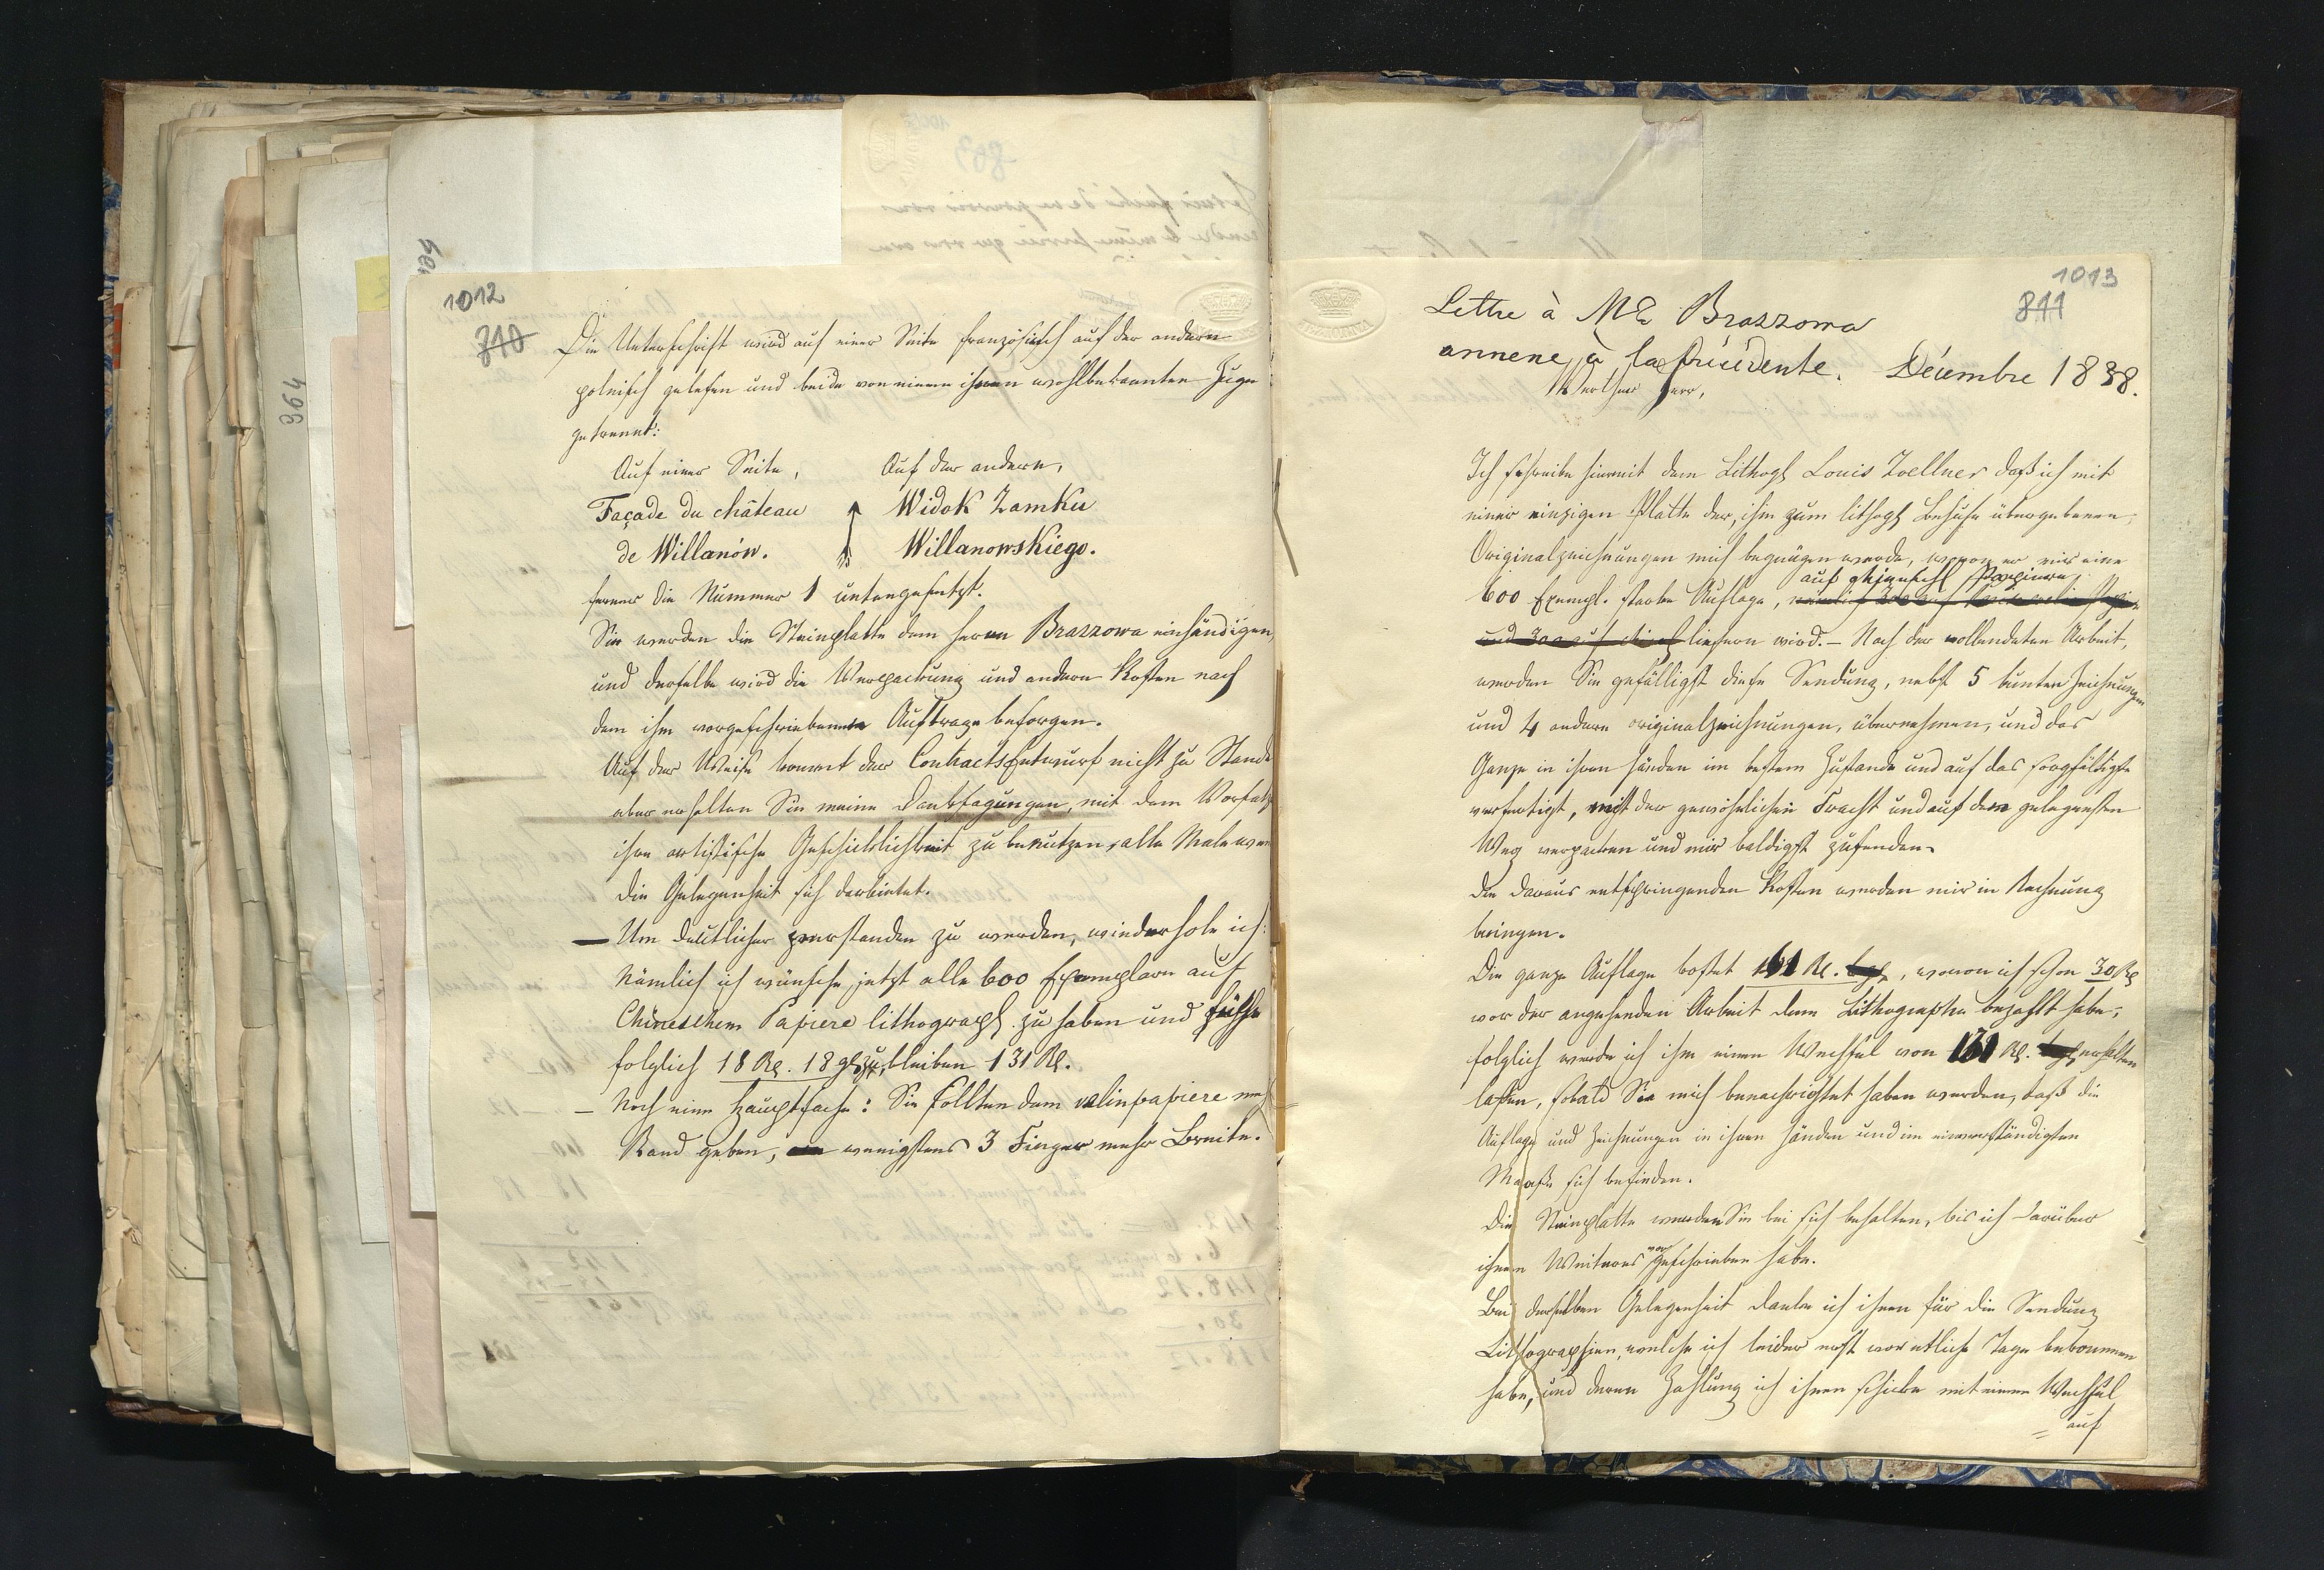 1012
Die Unterschrift wird auf einer Seite französisch auf der andern
polnisch gelesen und beide von einem ihnen wohlbekannten Zuge
getrennt:
Auf einer Seite, Auf der andern,
Façade du château Widok Zamku
de Willanów. Willanowskiego.
ferner die Nummer 1 untengesetzt.
Sie werden die Steinplatte dem Herrn Brazzowa einhändigen,
und derselbe wird die Verpackung und andere Kosten nach
dem ihm vorgeschriebenen Auftrage besorgen.
Auf der Weise kommt der Contracts Entwurf nicht zu Stande
aber erhalten Sie meine Danksagungen, mit dem Vorsatz
ihre artistische Geschicklichkeit zu benutzen, alle Male wenn
die Gelegenheit sich darbietet.
— Um deutlicher verstanden zu werden, wiederhole ich:
Nämlich ich wünsche jetzt alle 600 Exemplare auf
Chineschem Papiere lithograph. zu haben und
folglich 18 Rl. 18 bleiben 131 Rl.
— Noch eine Hauptsache: Sie sollten dem velinpapiere mehr
Rand geben, wenigstens 3 Finger mehr Breite.
364
1013
811
Lettre à Mr Brazzowa
annexe à la précédente. Décembre 1838.
Werther Herr,
Ich schreibe hiermit dem Lithogh Louis Zoellner daß ich mit
einer einzigen Platte der, ihm zum lithogh Behufe übergebenen,
Originalzeichnungen mich begnügen werde, wovon er mir eine
auf chinesch Papiere
600 Exempl. starke Auflage,
liefern wird. — Nach der vollendeten Arbeit,
werden Sie gefälligst diese Sendung, nebst 5 bunten Zeichnungen
und 4 andern originalzeichnungen, übernehmen, und das
Ganze in ihren Händen im bestem Zustande und auf das sorgfältigste
verfertigt, mit der gewöhnlichen Fracht und auf dem gelegensten
Weg verpacken und mir baldigst zusenden.
Die daraus entspringenden Kosten werden mir in Rechnung
bringen.
Die ganze Auflage kostet 161 Rl. , wovon ich schon 30 Rl
vor der angehenden Arbeit dem Lithographen bezahlt habe;
folglich werde ich ihm einen Wechsel von 131 Rl. erhalten
laßen, sobald Sie mich benachrichtet haben werden, daß die
Auflage und Zeichnungen in ihren Händen und im einverständigten
Maaße sich befinden.
Die Steinplatte werden Sie bei sich behalten, bis ich darüber
ihnen Weiteres vorgeschrieben habe.
Bei derselben Gelegenheit danke ich ihnen für die Sendung
Lithographien, welche ich leider erst vor etliche Tage bekommen
habe, und deren Zahlung ich ihnen schicke mit einem Wechsel
= auf